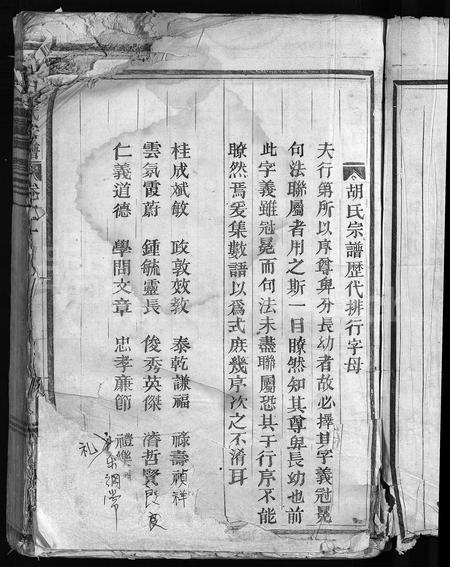 胡氏宗譜歷代排行字母
夫行第所以序尊與分長幼者故必擇其字義冠冕
句法聯屬者用之斯一目瞭然知其尊與長幼也前
此字義雖冠冕而句法未盡聯屬恐其于行序不能
瞭然焉爰集數語以為式庶幾序次之不淆耳
桂成斌敏 政敦效教 泰乾謙福 祿壽禎祥
雲氣霞蔚 鍾毓靈長 俊秀英傑 濬哲賢良
仁義道德 學問文章 忠孝廉節 禮樂綱常
礼
宗譜